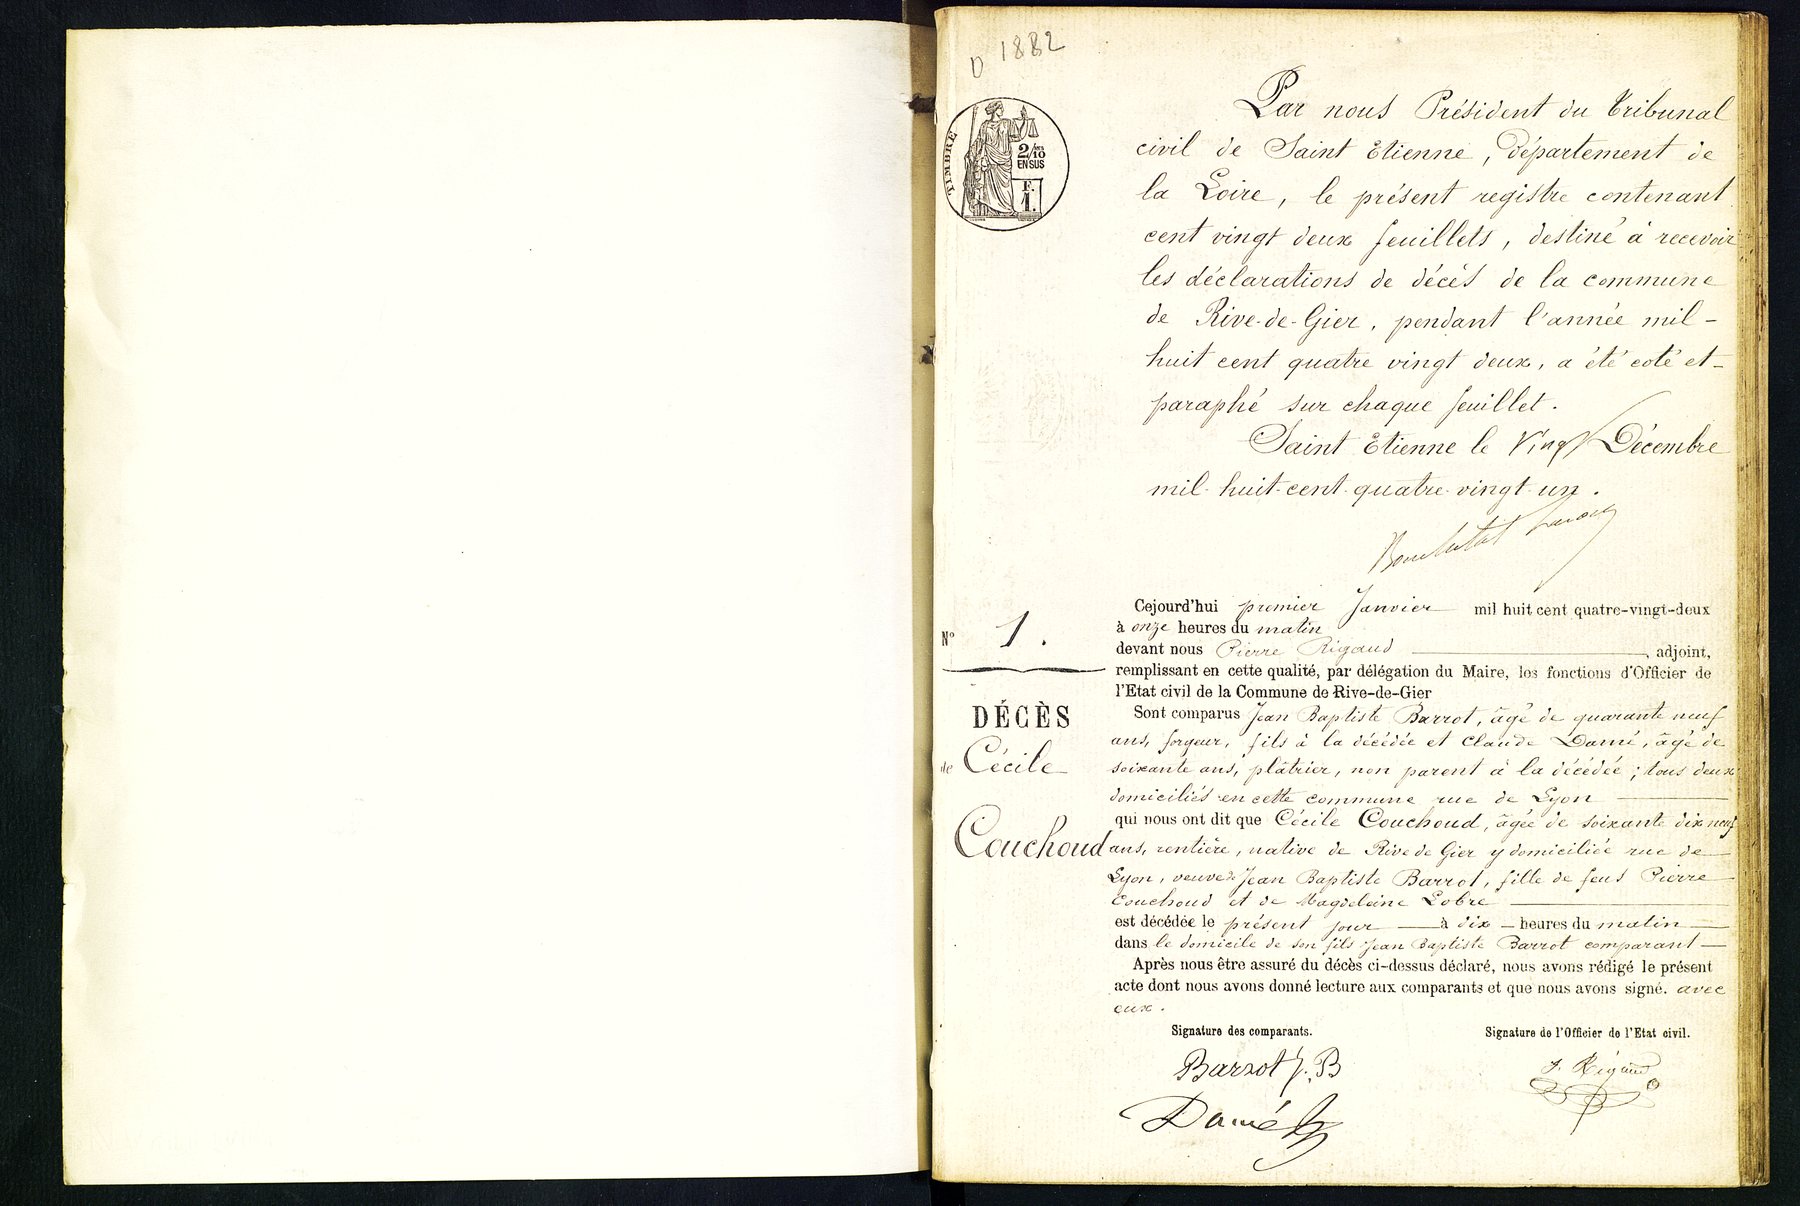 D 1882
TIMBRE
2/10 EN SUS
F. 1.
Par nous Président du Tribunal
civil de Saint Etienne, Département de
la Loire, le présent registre contenant
cent vingt deux feuillets, destiné à recevoir
les déclarations de décès de la commune
de Rive-de-Gier, pendant l'année mil-
huit cent quatre vingt deux, a été coté et
paraphé sur chaque feuillet.
Saint Etienne le Vingt Décembre
mil-huit-cent-quatre-vingt-un.
Cejourd'hui premier Janvier mil huit cent quatre-vingt-deux
à onze heures du matin
N° 1.
devant nous Pierre Rigaud, adjoint,
remplissant en cette qualité, par délégation du Maire, les fonctions d'Officier de
l'Etat civil de la Commune de Rive-de-Gier
DÉCÈS
de Cécile
Couchoud
Sont comparus Jean Baptiste Barrot, âgé de quarante neuf
ans, forgeur, fils à la décédée et Claude Damé, âgé de
soixante ans, plâtrier, non parent à la décédée; tous deux
domiciliés en cette commune rue de Lyon
qui nous ont dit que Cécile Couchoud, âgée de soixante dix neuf
ans, rentière, native de Rive de Gier y domiciliée rue de
Lyon, veuve de Jean Baptiste Barrot, fille de feus Pierre
Couchoud et de Magdeleine Lobre
est décédée le présent jour à dix heures du matin
dans le domicile de son fils Jean Baptiste Barrot comparant
Après nous être assuré du décès ci-dessus déclaré, nous avons rédigé le présent
acte dont nous avons donné lecture aux comparants et que nous avons signé. avec
eux.
Signature des comparants.
Signature de l'Officier de l'Etat civil.
Barrot J. B
P. Rigaud
Damé